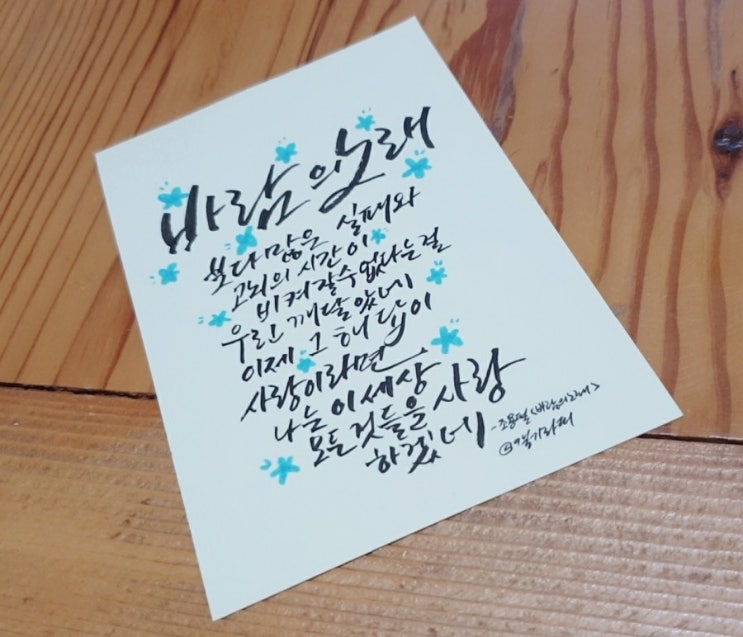 바람의 노래
보다 많은 실패와
고뇌의 시간이
비켜갈 수 없다는 걸
우린 깨달았네
이제 그 해답이
사랑이라면
나는 이 세상
모든 것들을 사랑
하겠네
- 조용필 <바람의 노래>